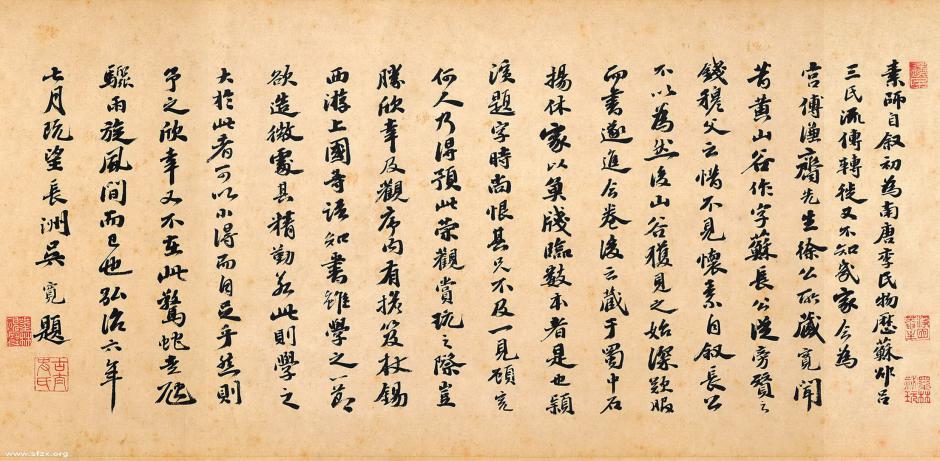 素師自叙初為南唐李氏物歷蘇邵呂
三氏流傳轉徙又不知幾家今為
宮傅謙齋先生徐公所藏寬聞
昔黃山谷作字蘇長公從旁贊之
錢穆父云惜不見懷素自叙長公
不以為然後山谷獲見之始深歎服
而書遂進今卷後云藏于蜀中石
揚休家以魚牋臨數本者是也潁
濱題字時尚恨其兄不及一見顧寬
何人乃得預此榮觀賞玩之際豈
勝欣幸及觀序內有擔笈杖錫
西游上國等語知書雖學之一節
欲造微處其精勤若此則學之
大於此者可以小得而自足乎然則
予之欣幸又不在此驚蛇走虺
驟雨旋風間而已也弘治六年
七月既望長洲吳寬題
www.sfzx.org